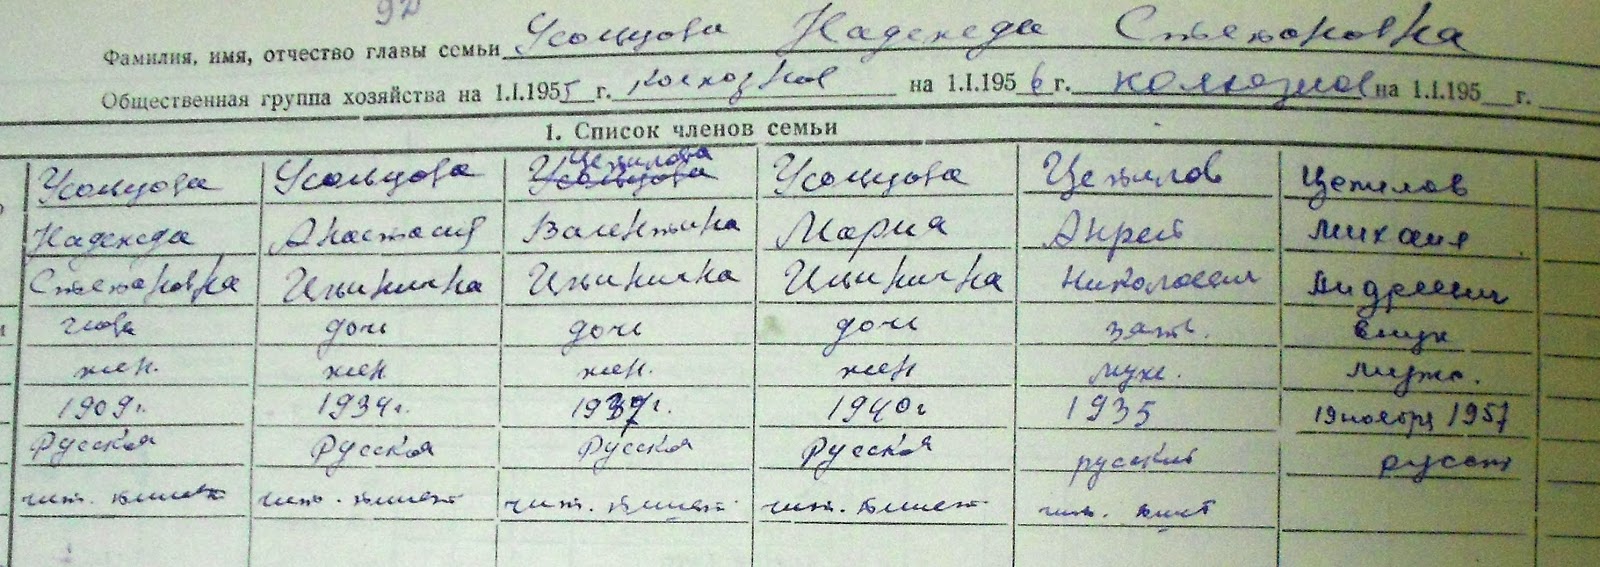 92
Фамилия, имя, отчество главы семьи Усольцова Надежда Степановна
Общественная группа хозяйства на 1.I.1955 г. колхозное на 1.I.1956 г. колхозное на 1.I.195 г.
1. Список членов семьи
Усольцова Усольцова Цепилова Усольцова Усольцова Цепилов Цепилов
Надежда Анастасия Валентина Мария Анрей Михаил
Степановна Ильинична Ильинична Ильинична Николаевич Андреевич
глова дочь дочь дочь зять. внук
жен. жен жен. жен муж. мужс.
1909г. 1934г. 1937г. 1940г 1935 19 ноября 1957
Русская Русская Русская Русская русский русский
чит. пишет чит. пишет чит. пишет чит. пишет чит. пишет